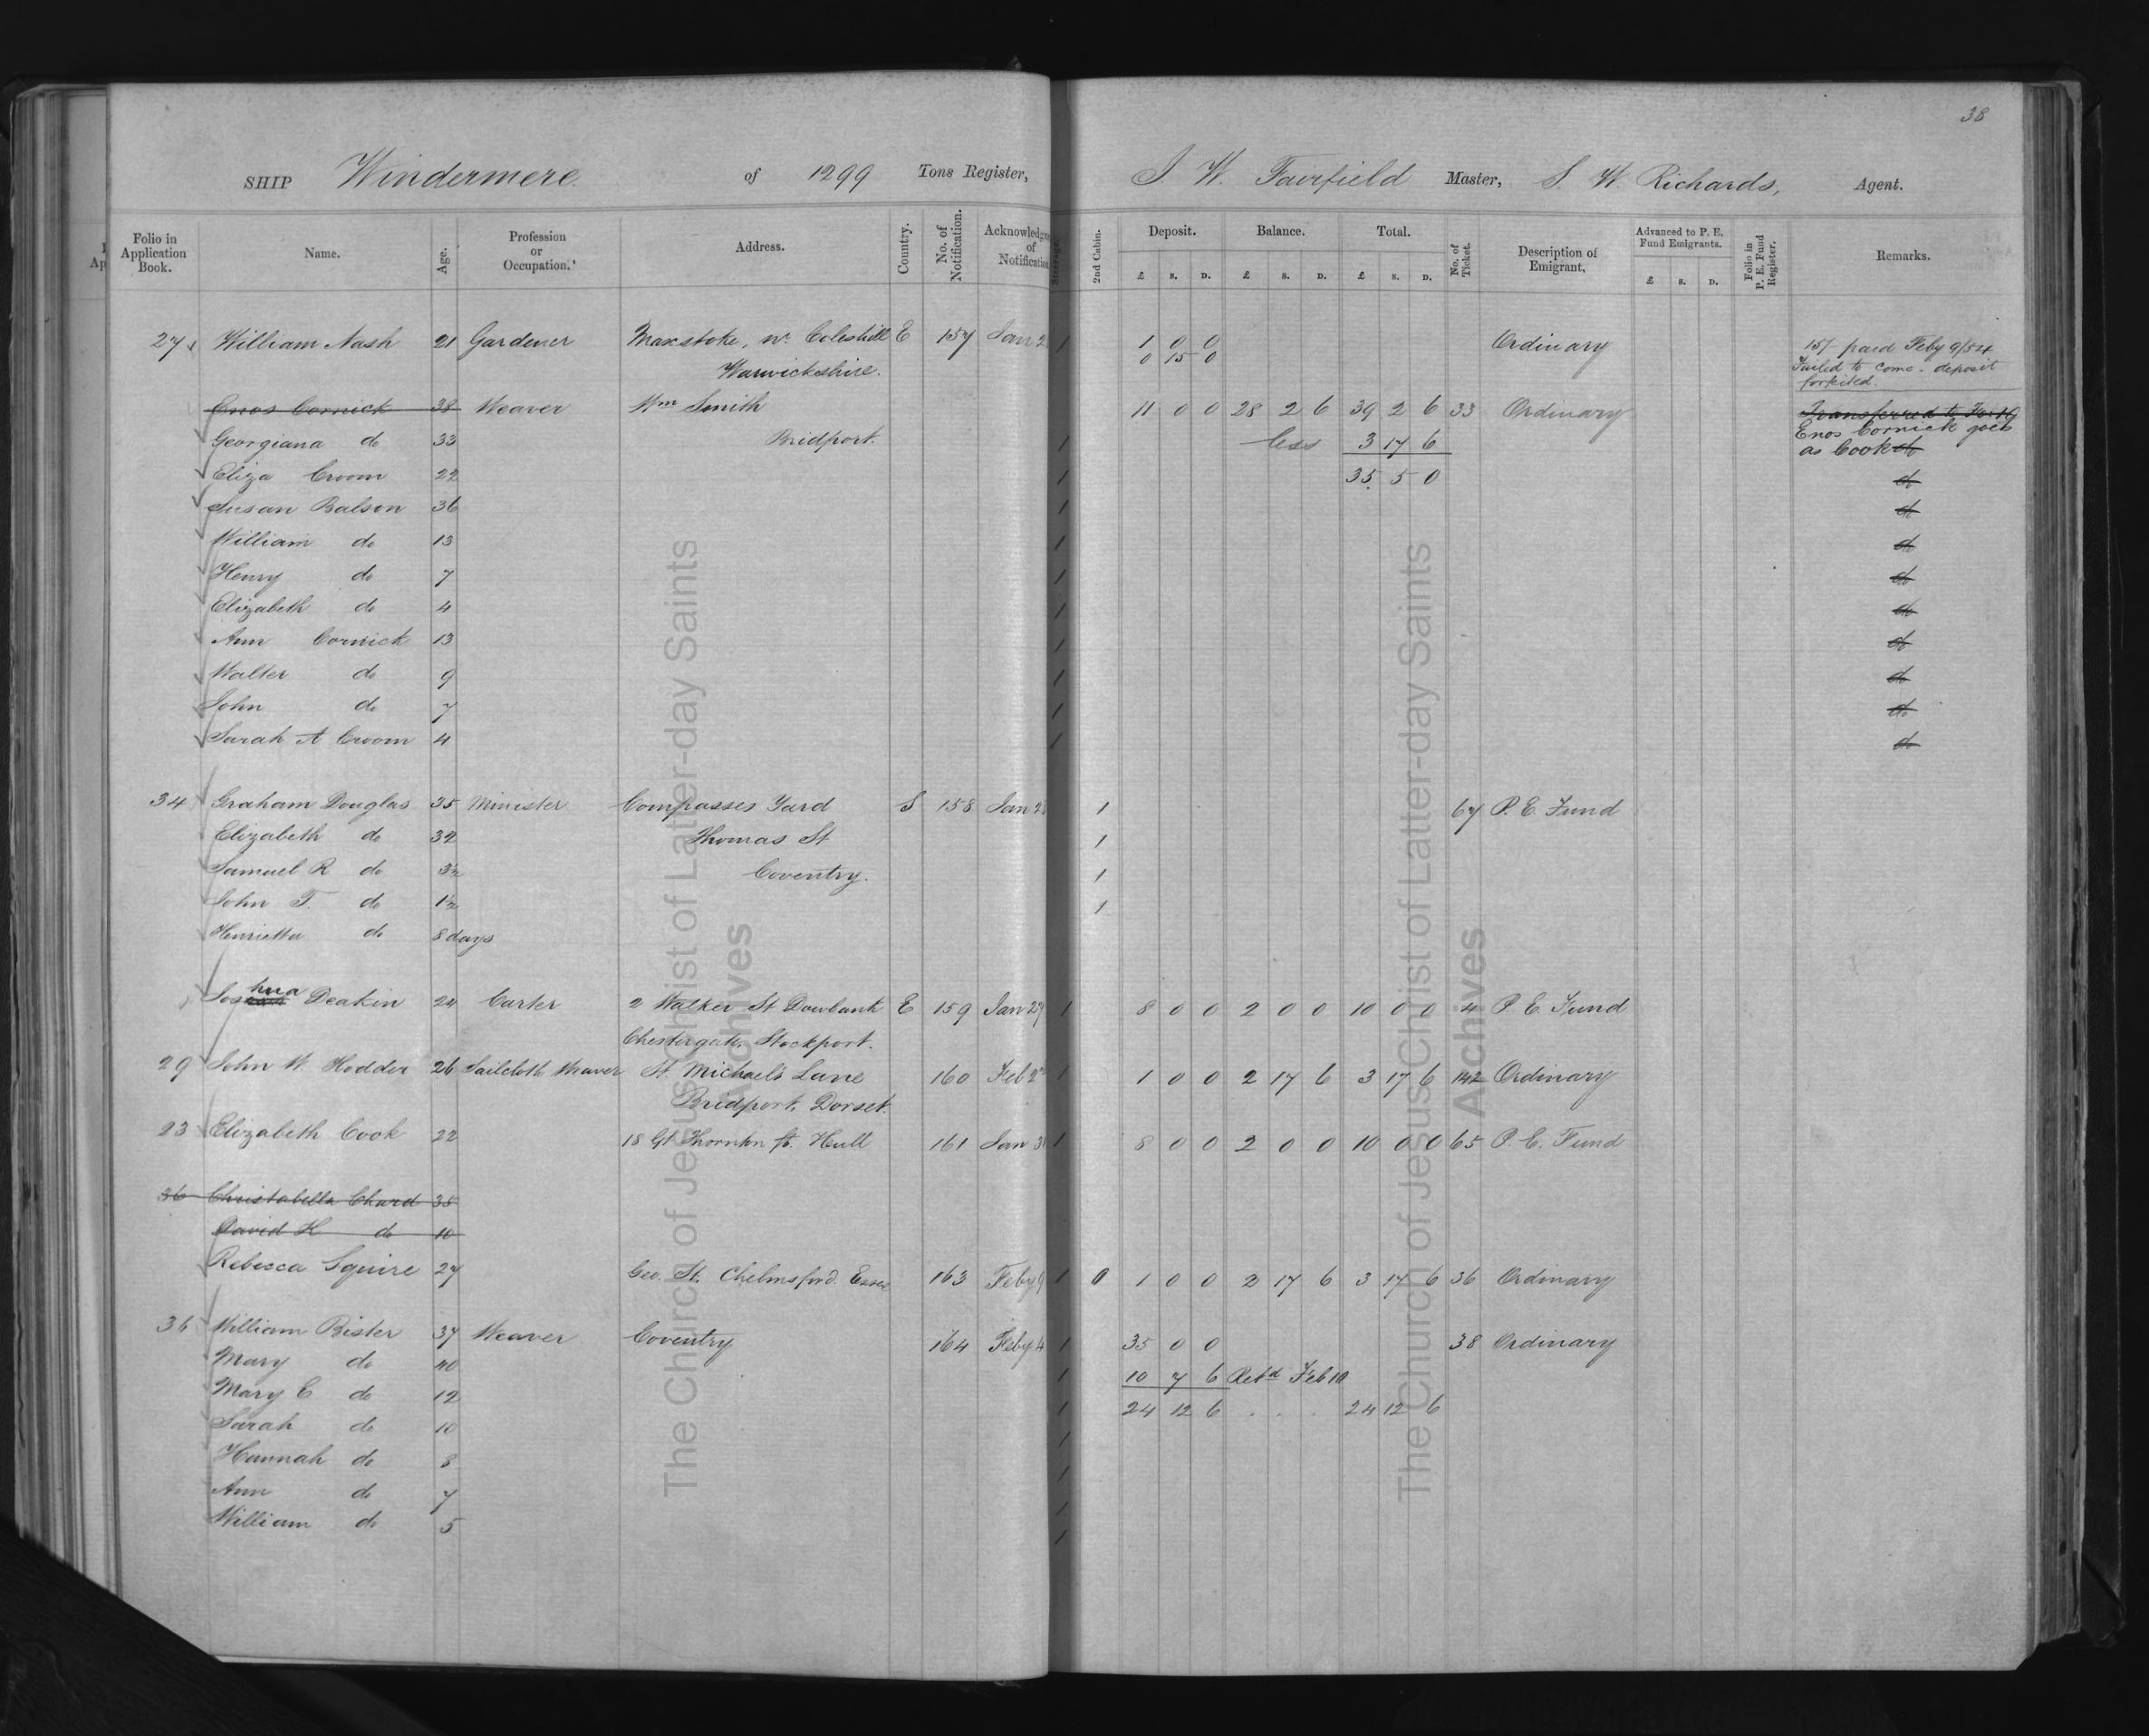 38
SHIP Windermere of 1299 Tons Register, J. W. Fairfield Master, S. W. Richards, Agent.
Folio in Application Book. Name. Age. Profession or Occupation. Address. Country. No. of Notification. Acknowledgm of Notification Steerage. 2nd Cabin. Deposit. Balance. Total. No. of Ticket. Description of Emigrant, Advanced to P. E. Fund Emigrants. Folio in P. E. Fund Register. Remarks.
£ s. D. £ s. D. £ s. D. £ s. D.
27 William Nash 21 Gardener Maxstoke, nr. Coleshill E 157 Jan 2 1 1 0 0 Ordinary 15/ paid Feby 9/54
0 15 0 Failed to come - deposit
Warwickshire. forfeited.
Enos Cornick 38 Weaver Wm Smith 11 0 0 28 2 6 39 2 6 33 Ordinary Transferred to
Georgiana do 33 Bridport. 1 less 3 17 6 Enos Cornick goes
as Cook do
Eliza Croom 22 1 35 5 0 do
Susan Balson 36 1 do
William do 13 1 do
Henry do 7 1 do
Elizabeth do 4 1 do
Ann Cornick 13 1 do
Walter do 9 1 do
John do 7 1 do
Sarah A Croom 4 1 do
34 Graham Douglas 35 Minister Compasses Yard S 158 Jan 2 1 67 P. E. Fund
Elizabeth do 32 Thomas St 1
Samuel R do 3½ Coventry. 1
John T. do 1½ 1
Henrietta do 8 days
hua
Jos Deakin 24 Carter 2 Walker St Dowbank E 159 Jan 27 1 8 0 0 2 0 0 10 0 0 4 P E. Fund
Chestergate, Stockport.
29 John W. Hodder 26 Sailcloth Weaver St. Michael's Lane 160 Feb 2 1 1 0 0 2 17 6 3 17 6 142 Ordinary
Bridport, Dorset.
23 Elizabeth Cook 22 18 Gt Thornton St. Hull 161 Jan 3 1 8 0 0 2 0 0 10 0 0 65 P. E. Fund
36 Christabella Chard 35
David H do 10
Rebecca Squire 27 Geo. St. Chelmsford. Essex 163 Feby 9 1 0 1 0 0 2 17 6 3 17 6 36 Ordinary
36 William Bister 37 Weaver Coventry 164 Feby 4 1 35 0 0 38 Ordinary
Mary do 40 1 10 7 6 Retd Feb 10
Mary E do 12 1 24 12 6 . . . 24 12 6
Sarah do 10 1
Hannah do 8 1
Ann do 7 1
William do 5 1
The Church of Jesus Christ of Latter-day Saints
Archives
The Church of Jesus Christ of Latter-day Saints
Archives